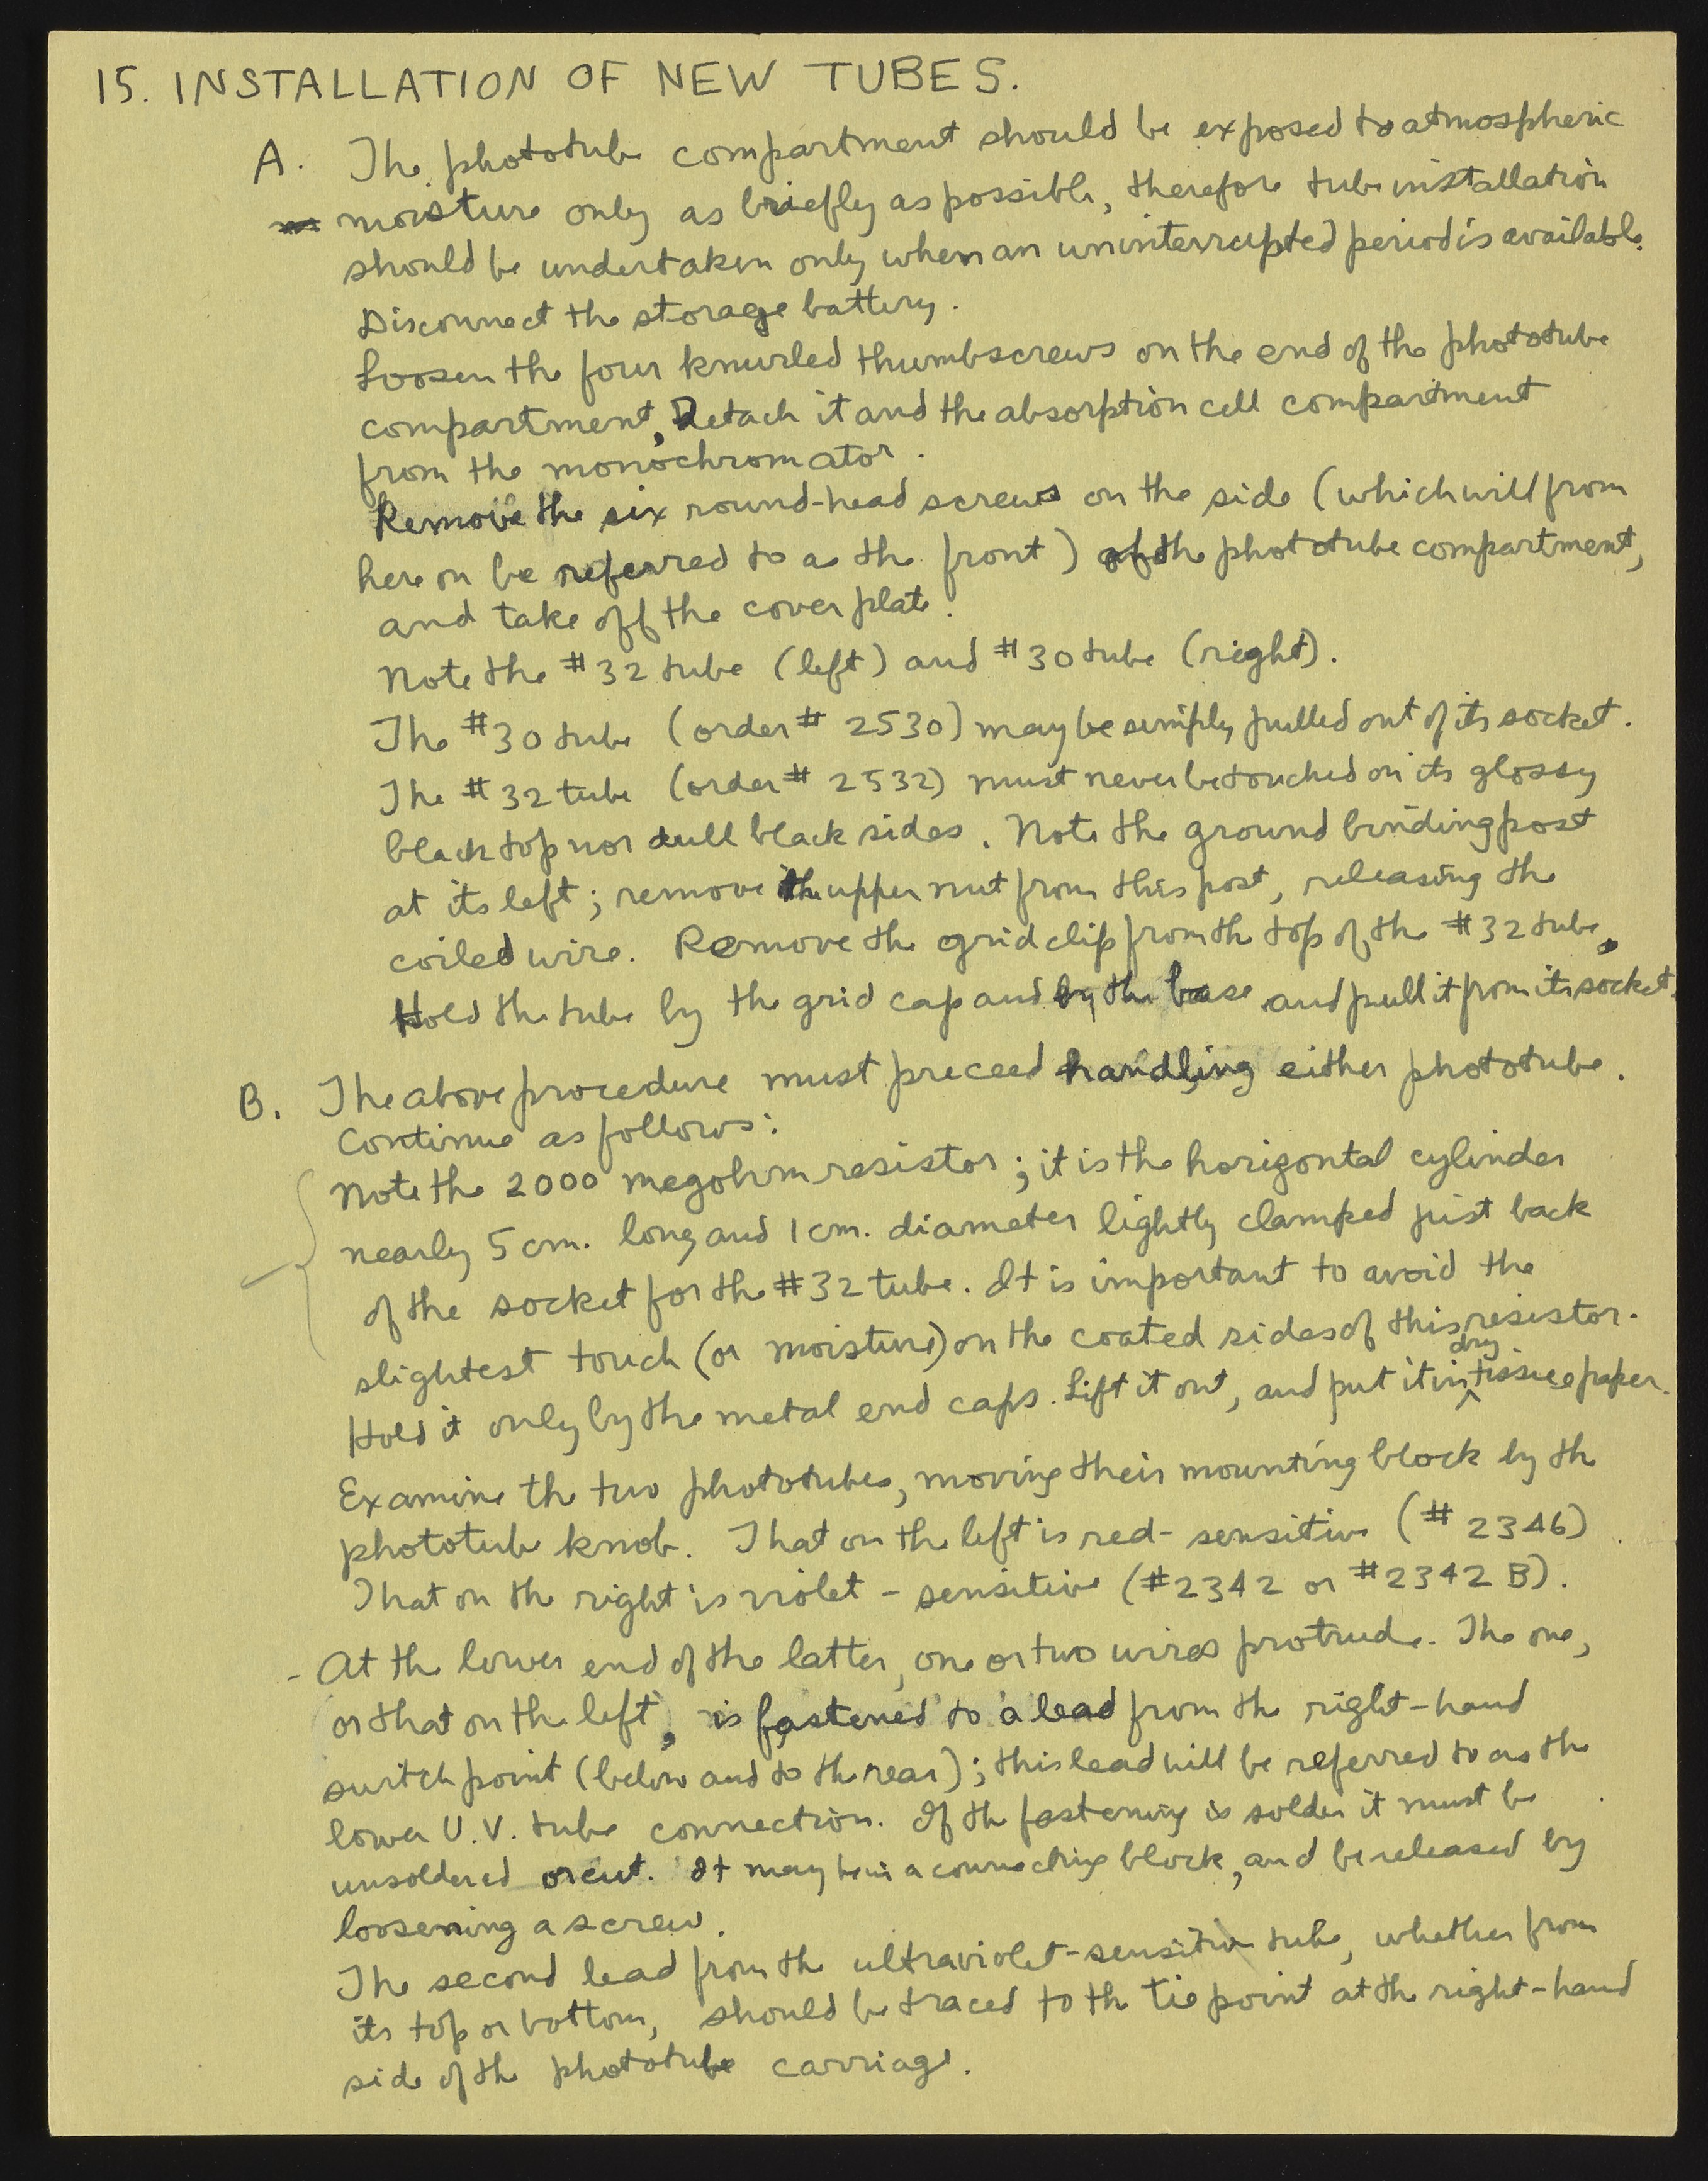 15. INSTALLATION OF NEW TUBES.
A. The phototube compartment should be exposed to atmospheric
moisture only as briefly as possible, therefore tube installation
should be undertaken only when an uninterrupted period is available.
Disconnect the storage battery.
Loosen the four knurled thumbscrews on the end of the phototube
compartment, Detach it and the absorption cell compartment
from the monochromator.
Remove the six round-head screws on the side (which will from
here on be referred to as the front) of the phototube compartment,
and take off the cover plate.
Note the #32 tube (left) and #30 tube (right).
The #30 tube (order # 2530) may be simply pulled out of its socket.
The #32 tube (order # 2532) must never be touched on its glossy
black top nor dull black sides. Note the ground binding post
at its left; remove the upper nut from this post, releasing the
coiled wire. Remove the grid clip from the top of the #32 tube.
Hold the tube by the grid cap and by the base and pull it from its socket.
B. The above procedure must preceed handling either phototube.
Continue as follows:
Note the 2000 megohm resistor; it is the horizontal cylinder
nearly 5 cm. long and 1 cm. diameter lightly clamped just back
of the socket for the #32 tube. It is important to avoid the
slightest touch (or moisture) on the coated sides of this resistor.
Hold it only by the metal end caps. Lift it out, and put it in dry tissue paper.
Examine the two phototubes, moving their mounting block by the
phototube knob. That on the left is red-sensitive (# 2346)
That on the right is violet-sensitive (#2342 or #2342 B).
- At the lower end of the latter, one or two wires protrude. The one,
or that on the left, is fastened to a lead from the right-hand
switch point (below and to the rear); this lead will be referred to as the
lower U.V. tube connection. If the fastening is solder it must be
unsoldered or cut. It may be in a connecting block, and be released by
loosening a screw.
The second lead from the ultraviolet-sensitive tube, whether from
its top or bottom, should be traced to the tie point at the right-hand
side of the phototube carriage.